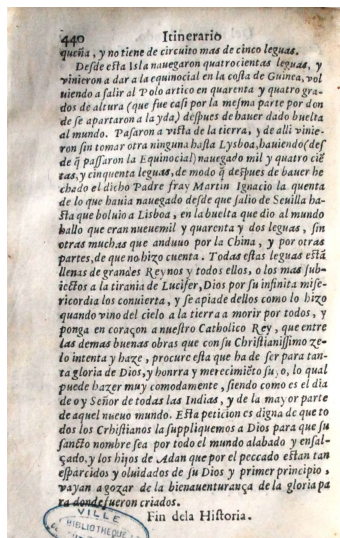 440 Itinerario
queña, y no tiene de circuito mas de cinco leguas.
Desde esta Isla nauegaron quatrocientas leguas, y
vinieron a dar a la equinocial en la costa de Guinea, vol
uiendo a salir al Polo artico en quarenta y quatro gra-
dos de altura (que fue casi por la mesma parte por don
de se apartaron a la yda) despues de hauer dado buelta
al mundo. Pasaron a vista de la tierra, y de alli vinie-
ron sin tomar otra ninguna hasta Lysboa, hauiendo (des
de q̃ passaron la Equinocial) nauegado mil y quatro ciẽ
tas, y cinquenta leguas, de modo q̃ despues de hauer he
chado el dicho Padre fray Martin Ignacio la quenta
de lo que hauia nauegado desde que salio de Seuilla ha-
sta que boluio a Lisboa, en la buelta que dio al mundo
hallo que eran nueuemil y quarenta y dos leguas, sin
otras muchas que anduuo por la China, y por otras
partes, de que no hizo cuenta. Todas estas leguas està
llenas de grandes Reynos y todos ellos, o los mas sub-
iectos a la tirania de Lucifer, Dios por su infinita mise-
ricordia los conuierta, y se apiade dellos como lo hizo
quando vino del cielo a la tierra a morir por todos, y
ponga en coraçon a nuestro Catholico Rey, que entre
las demas buenas obras que con su Christianissimo ze-
lo intenta y haze, procure esta que ha de ser para tan-
ta gloria de Dios, y honrra y merecimiẽto suyo, lo qual
puede hazer muy comodamente, siendo como es el dia
de oy Señor de todas las Indias, y de la mayor parte
de aquel nueuo mundo. Esta peticion es digna de que to
dos los Crhistianos la suppliquemos a Dios para que su
sancto nombre sea por todo el mundo alabado y ensal-
çado, y los hijos de Adan que por el peccado estan tan
esparcidos y oluidados de su Dios y primer principio,
vayan a gozar de la bienauenturança de la gloria pa
ra donde fueron criados.
Fin dela Historia.
VILLE
BIBLIOTHEQUE